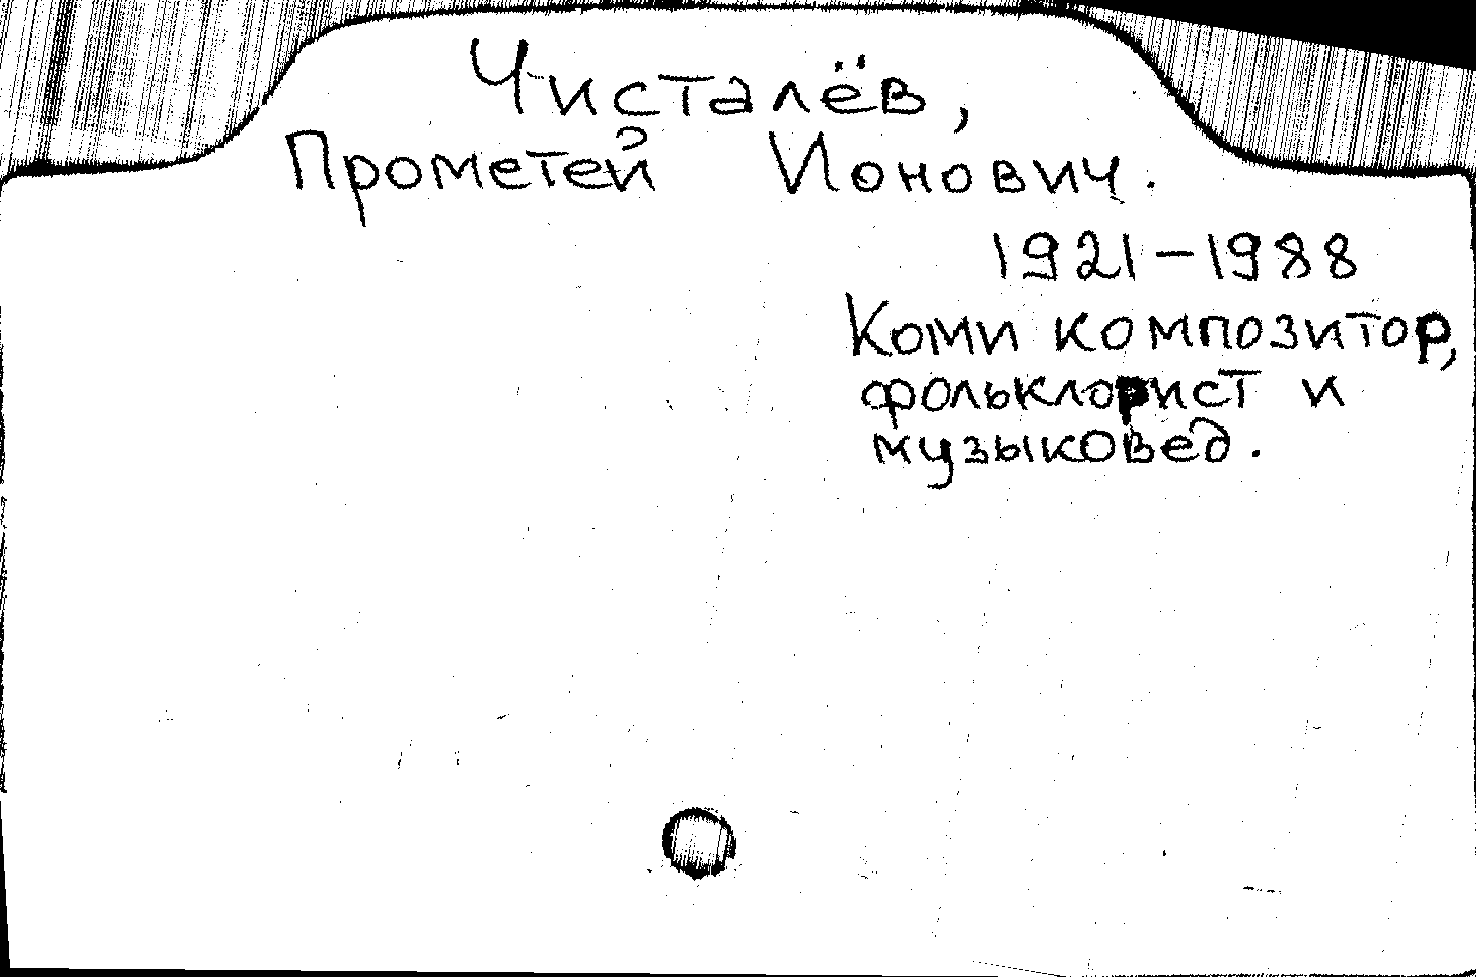 Чисталёв,
Прометей Ионович.
1921-1988
Коми композитор,
фольклорист и
музыковед.